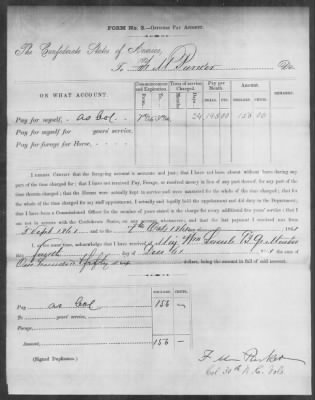 FORM No. 3.—Officers Pay Account.
The Confederate States of America,
To F. M. Parker Dr.
ON WHAT ACCOUNT.
Commencement and Expiration
Term of service Charged.
Pay per Month.
Amount.
REMARKS.
From.
To.
Months.
Days.
DOLLARS.
CTS.
DOLLARS.
CTS.
Pay for myself, as Col. 24 195 00 156 00
Pay for myself for years' service,
Pay for forage for Horse,
I HEREBY CERTIFY that the foregoing account is accurate and just; that I have not been absent without leave during any
part of the time charged for; that I have not received Pay, Forage, or received money in lieu of any part thereof, for any part
of the time therein charged; that the Horses were actually kept in service and were mustered for the whole of the time charged; that for
the whole of the time charged for my staff appointment, I actually and legally held the appointment and did duty in the Department; that
I have been a Commissioned Officer for the number of years stated in the charge for every additional five years' service; that I
am not in arrears with the Confederate States, on any account, whatsoever, and that the last payment I received was from
and to the 186
I, at the same time, acknowledge that I have received of Maj Wm
this day of 1861
One hundred & fifty six dollars, being the amount in full of said account.
DOLLARS. CENTS.
Pay as Col 156 —
To years' service,
Forage,
Amount, 156 —
(Signed Duplicates.)
F. M. Parker
Col 30th N. C. Vols